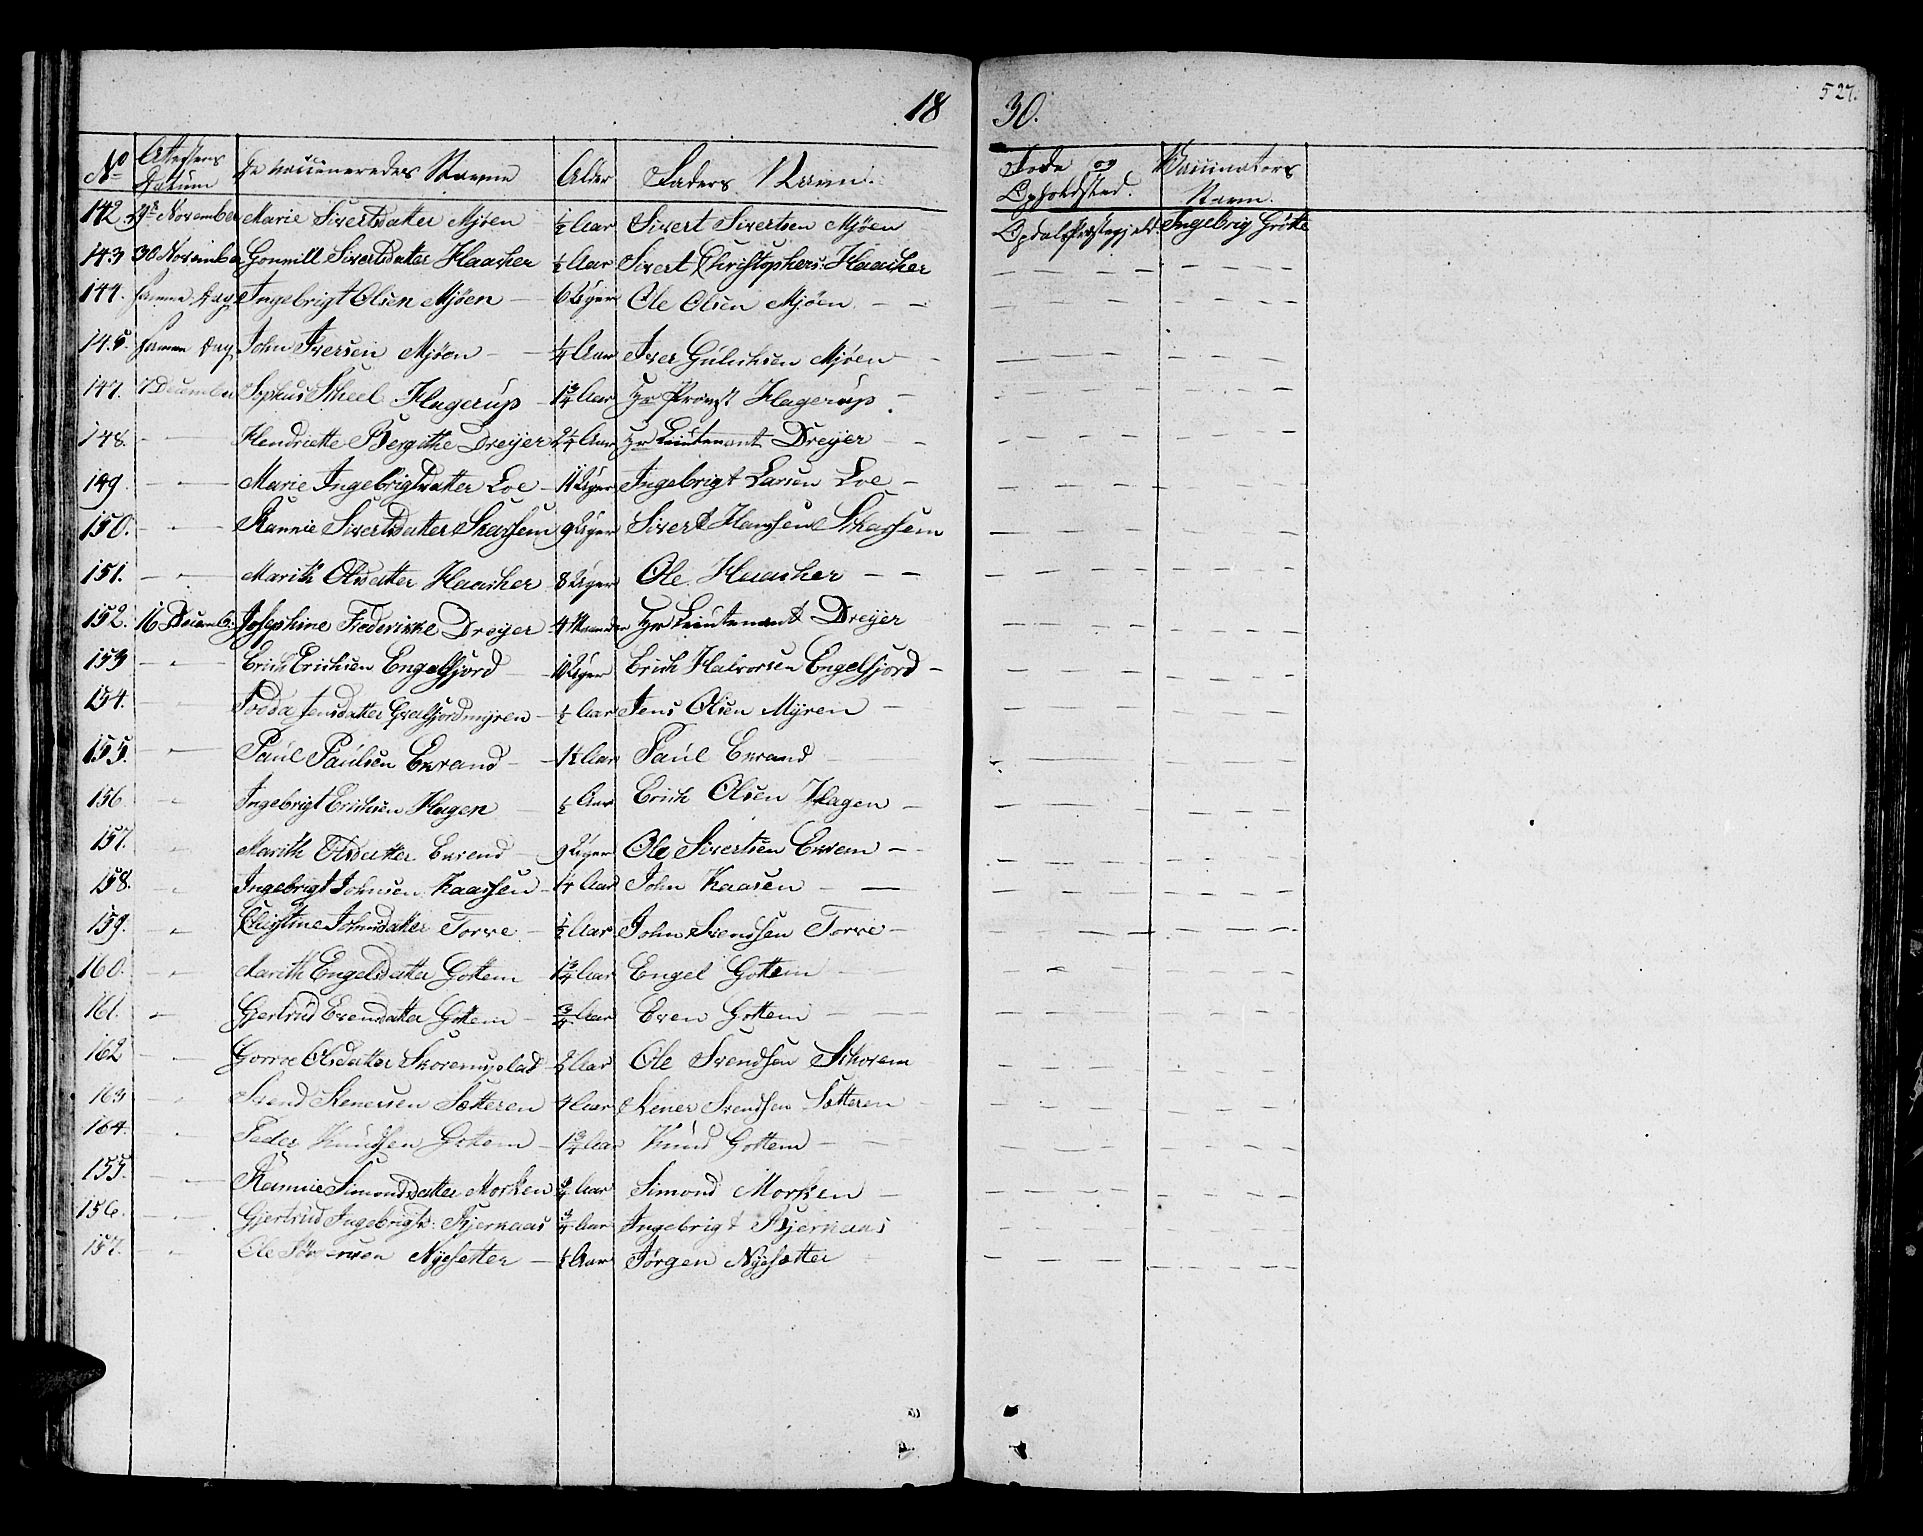 1830.
527.
No Attestens Datum De vaccineredes Navne Alder Faders Navn. Føde og Opholdsted. Vaccinators Navn.
142 November Marie Sivertsdatter Mjøen ½ Aar Sivert Sivertsen Mjøen Opdals Præstegjeld Ingebrig Grötte
143 30 November Gonnill Sivertsdatter Haacher ½ Aar Sivert Christophers: Haacher — — — — — — —
144. samme Dag Ingebrigt Olsen Mjöen — 6 Uger Ole Olsen Mjöen — — — — — — — — —
145. samme Dag John Iversen Mjöen — — ¼ Aar Iver Gulichsen Mjöen — — — — — — — — —
147. 7 December Sophus Scheel Hagerup — 1¾ Aar Hr Provst Hagerup — — — — — — — —
148. — — Hendriette Bergithe Dreyer 2¼ Aar Hr Lieutenant Dreyer — — — — — — — — —
149 — — Marie Ingebrigtsdatter Loe — 11 Uger Ingebrigt Larsen Loe — — — — — — — —
150. — — Rannie Sivertsdatter Skarsem 9 Uger Sivert Hansen Skarsem — — — — — — —
151. — — Marith Olsdatter Haacher 8 Uger Ole Haacher — — — — — — — — —
152. 16 Decemb: Josephine Frederikke Dreyer 4 Maaneder Hr Lieutenant Dreyer — — — — — — —
153 — — Erich Erichsen Engelsfjord — 11 Uger Erich Halvorsen Engelsfjord — — — — — — — —
154. — — Jensdatter — ½ Aar Jens Olsen Myren — — — — — — — —
155. — — Paul Paulsen Enrand — 1¼ Aar Paul Enrand — — — — — — — —
156 — Ingebrigt Erichsen Hagen ½ Aar Erich Olsen Hagen — — — — — — — —
157. — Marith Olsdatter — 9 Uger Ole Sivertsen — — — — — — — — —
158. — Ingebrigt Johnsen Kaasen — ¼ Aar John Kaasen — — — — — — — — —
159. — Christine Johnsdatter Torve — ½ Aar John Svendsen Torve — — — — — — — —
160. — Marith Engelsdatter Gottem 1¾ Aar Engel Gottem — — — — — — —
161. — Gjertrud Evensdatter Gottem — ¾ Aar Even Gottem — — — — — — — — —
162 — — Olsdatter 2 Aar Ole Svendsen Skorem — — — — — — —
163 — — Svend Stenersen Sætteren 4 Aar Stener Svendsen Sætteren — — — — — — —
164. — Peder Knudsen Gottem — 1¾ Aar Knud Gottem — — — — — — — — —
155. — — Rannie Simondsdatter Morken ¾ Aar Simond Morken — — — — — — — —
156. — — Gjertrud Ingebrigtsd: Kjernaas ¾ Aar Ingebrigt Kjernaas — — — — — — —
157. — — Ole Nyesetter — ½ Aar Jörgen Nyesetter — — — — — — —